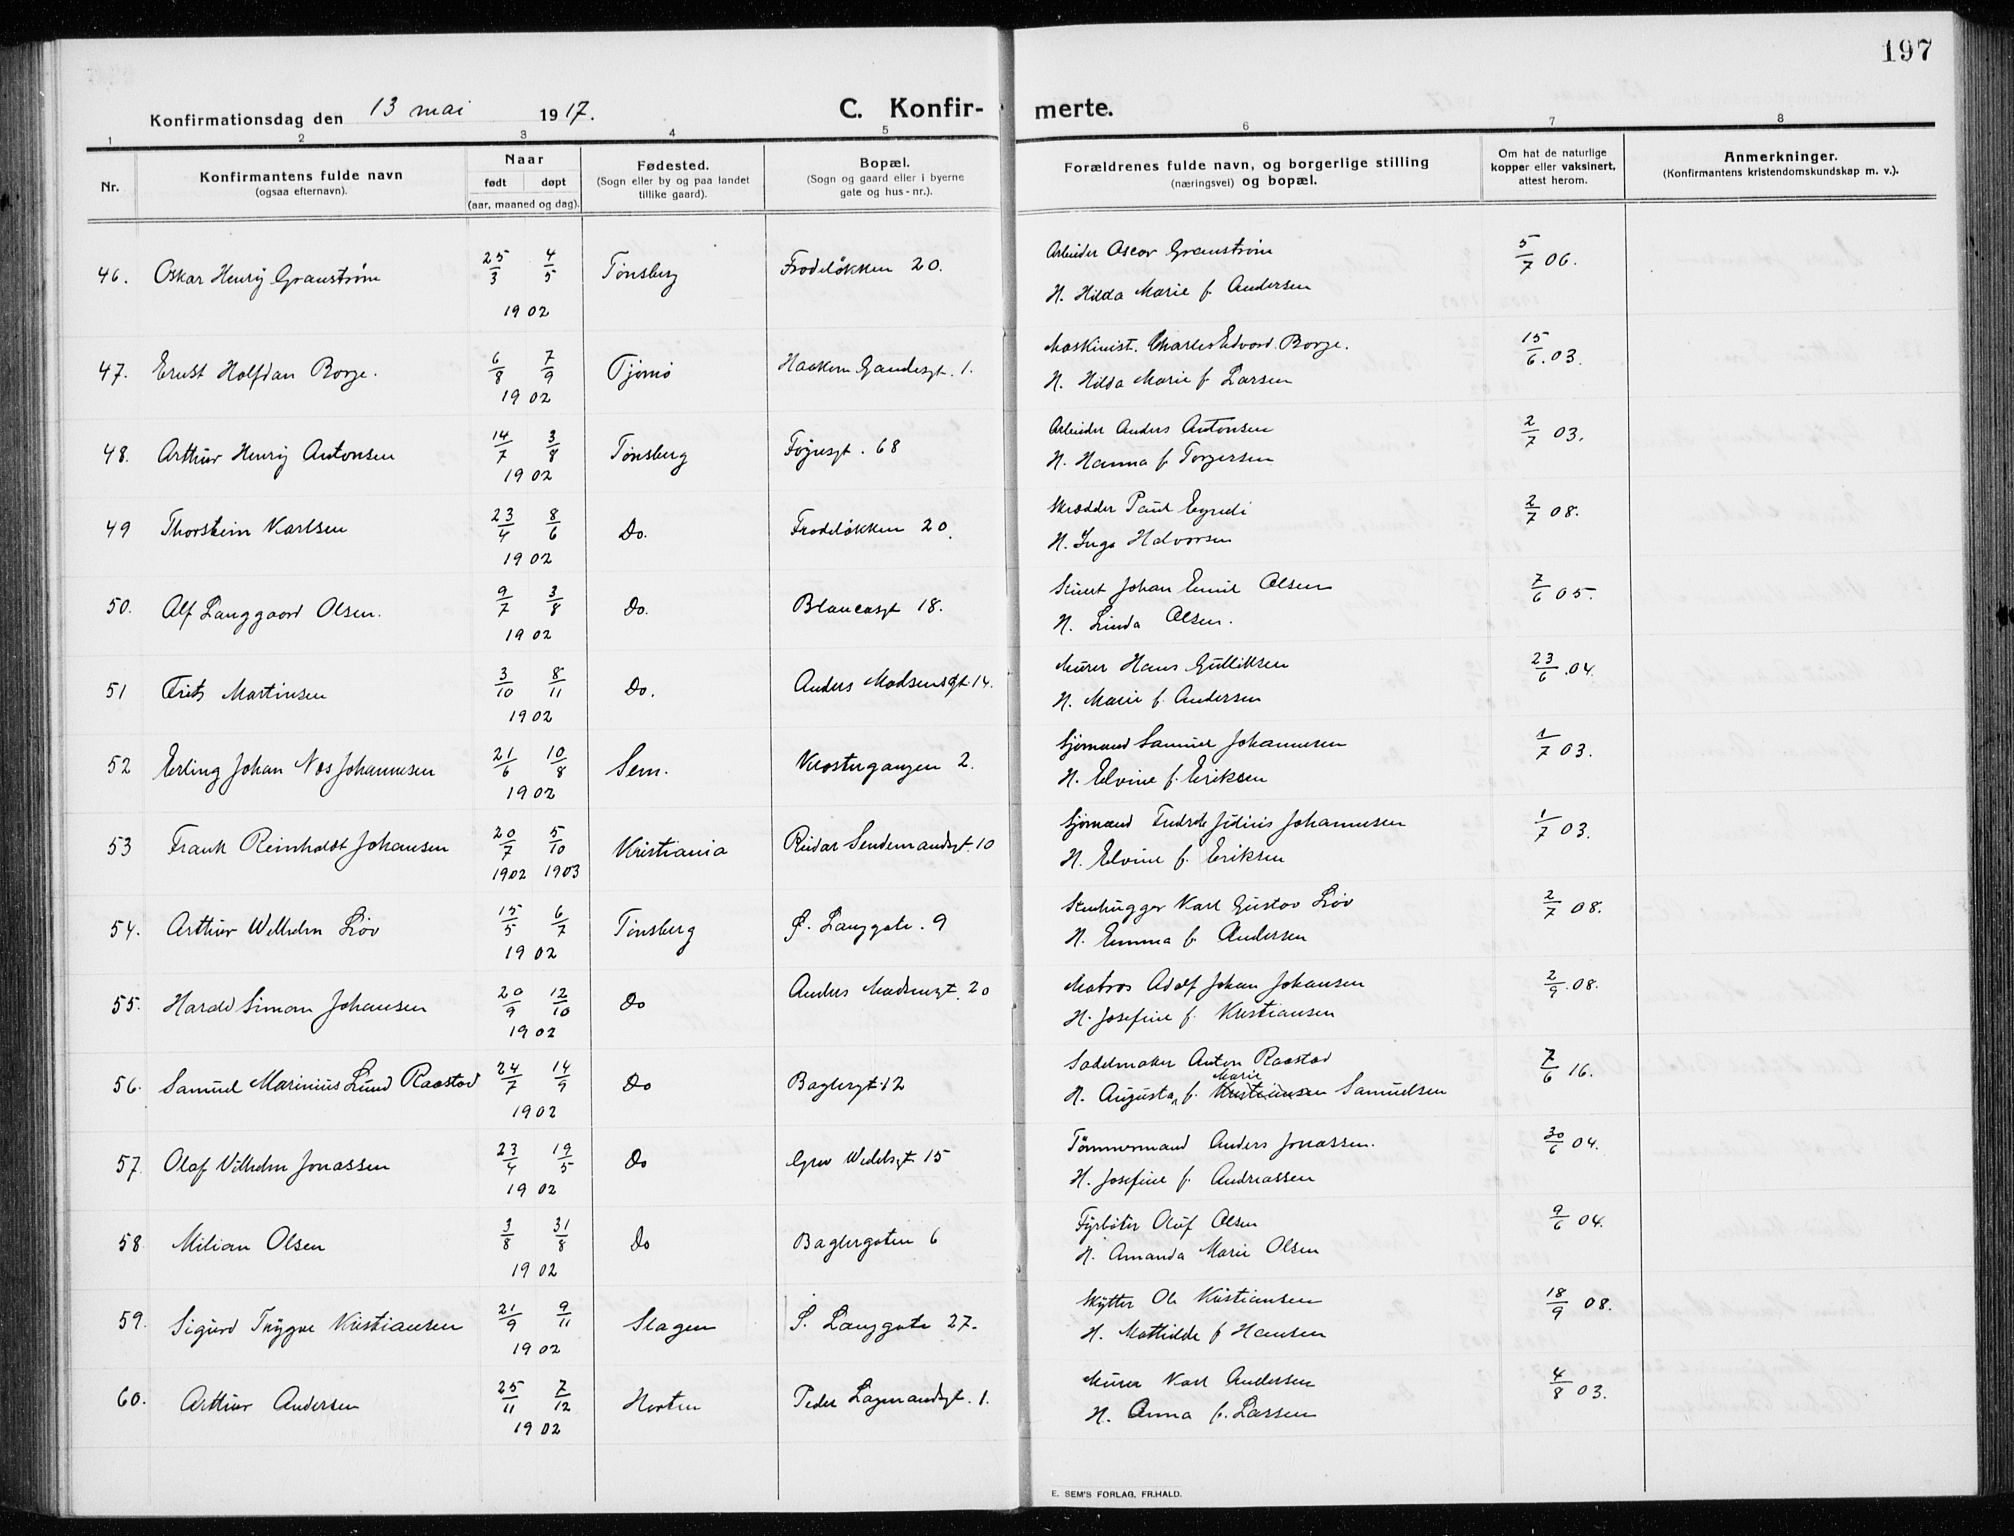 197
Konfirmationsdag den 13 mai 1917. C. Konfir- merte.
1 2 3 4 5 6 7 8
Nr. Konfirmantens fulde navn (ogsaa efternavn). Naar født døpt (aar, maaned og dag). Fødested. (Sogn eller by og paa landet tillike gaard). Bopæl. (Sogn og gaard eller i byerne gate og hus-nr.). Forældrenes fulde navn, og borgerlige stilling (næringsvei) og bopæl. Om hat de naturlige kopper eller vaksinert, attest herom. Anmerkninger. (Konfirmantens kristendomskundskap m. v.).
46. Oskar Henrij Granstrøm 25/3 4/5 1902 Tønsberg Frodeløkken 20. Arbeider Oscar Granstrøm 5/7 06.
H. Hilda Marie f. Andersen
47. Ernst Halfdan Borge. 6/8 7/9 1902 Tjømø Haakon Gamlesgt. 1. Maskinist. Charles Edvard Borge. 15/6.03.
H. Hilda Marie f. Larsen
48. Arthur Henrij Antonsen 14/7 3/8 1902 Tønsberg Føynsgt. 68 Arbeider Anders Antonsen 2/7 03.
H. Hanna f. Torgersen
49 Thorstein Karlsen 23/4 8/6 1902 Do. Frodeløkken 20. Skrædder Paul 2/7 08.
H. Inga Halvorsen
50. Alf Langgaard Olsen. 9/7 3/8 1902 Do. Blancasgt 18. Stuert Johan Emil Olsen 7/6 05.
H. Linda Olsen.
51 Frits Martinsen 3/10 8/11 1902 Do. Anders Madsensgt. 14. Murer Hans Gulliksen 23/6.04.
H. Marie f. Andersen
52 Erling Johan Næs Johannesen 21/6 10/8 1902 Sem. Klostergangen 2. Sjømand Samuel Johannesen 1/7 03.
H. Elvine f. Eriksen
53 Frank Reinholdt Johansen 20/7 1902 5/10 1903 Kristiania Reidar Sendemandsgt. 10 Sjømand Fredrik Julius Johannesen 1/7 03.
H. Elvine f. Eriksen
54. Arthur Wilhelm Løv 15/5 6/7 1902 Tønsberg Ø. Langgate. 9 Stenhugger Karl Gustav Løv 2/7 08.
H. Emma f. Andersen
55. Harald Simon Johansen 20/9 12/10 1902 Do Anders Madsensgt. 20 Matros Adolf Johan Johansen 2/9.08.
H. Josefine f. Kristiansen
56. Samuel Marinius Lund Raastad 24/7 14/9 1902 Do Baglergt. 12 Sadelmaker Anton Raastad 7/6 16.
H. Augusta Marie f. Kristiansen Samuelsen
57. Olaf Vilhelm Jonassen 23/4 19/5 1902 Do Grev Wedelsgt 15 Tømmermand Anders Jonassen. 30/6 04.
H. Josefine f. Andreassen
58 Milian Olsen 3/8 31/8 1902 Do Baglergaten 6 Fyrbøter Oluf Olsen 9/6 04.
H. Amanda Marie Olsen
59. Sigurd Trygve Kristiansen 21/9 9/11 1902 Slagen S. Langgate 27. Skytter Ole Kristiansen 18/9 08.
H. Mathilde f Hansen
60. Arthur Andersen 25/11 7/12 1902 Horten Peder Lagmandsgt. 1. Murer Karl Andersen 4/8 03.
H. Anna f. Larsen
E. SEM'S FORLAG, FR.HALD.